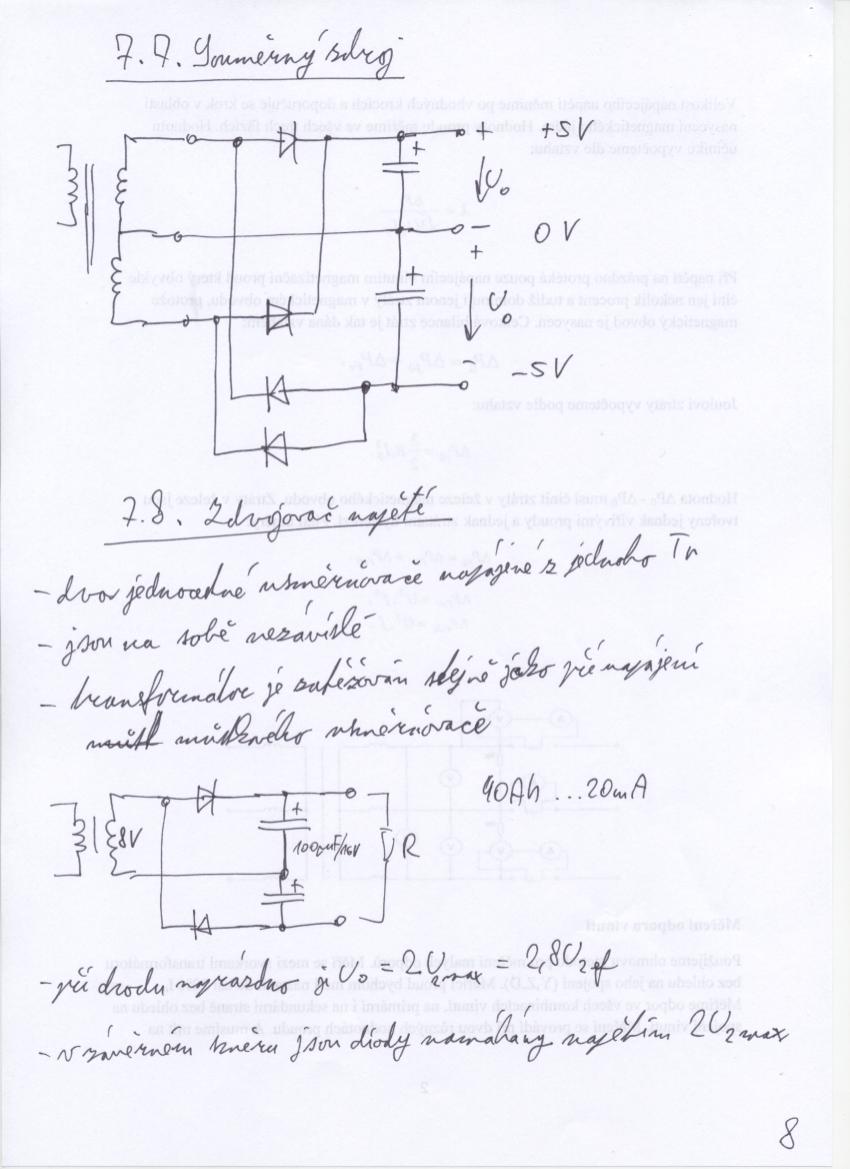 7.7. Souměrný zdroj
+ +5V
+ U₀
- 0V
+
+ U₀
- -5V
7.8. Zdvojovač napětí
- dva jednocestné usměrňovače napájené z jednoho Tr
- jsou na sobě nezávislé
- transformátor je zatěžován stejně jako při napájení
můstkového usměrňovače
40Ah ...20mA
+
8V 100uF/16V R
+
- při chodu naprázdno je U₀ = 2U₂max = 2,8U₂ef
- v závěrném směru jsou diody namáhány napětím 2U₂max
8